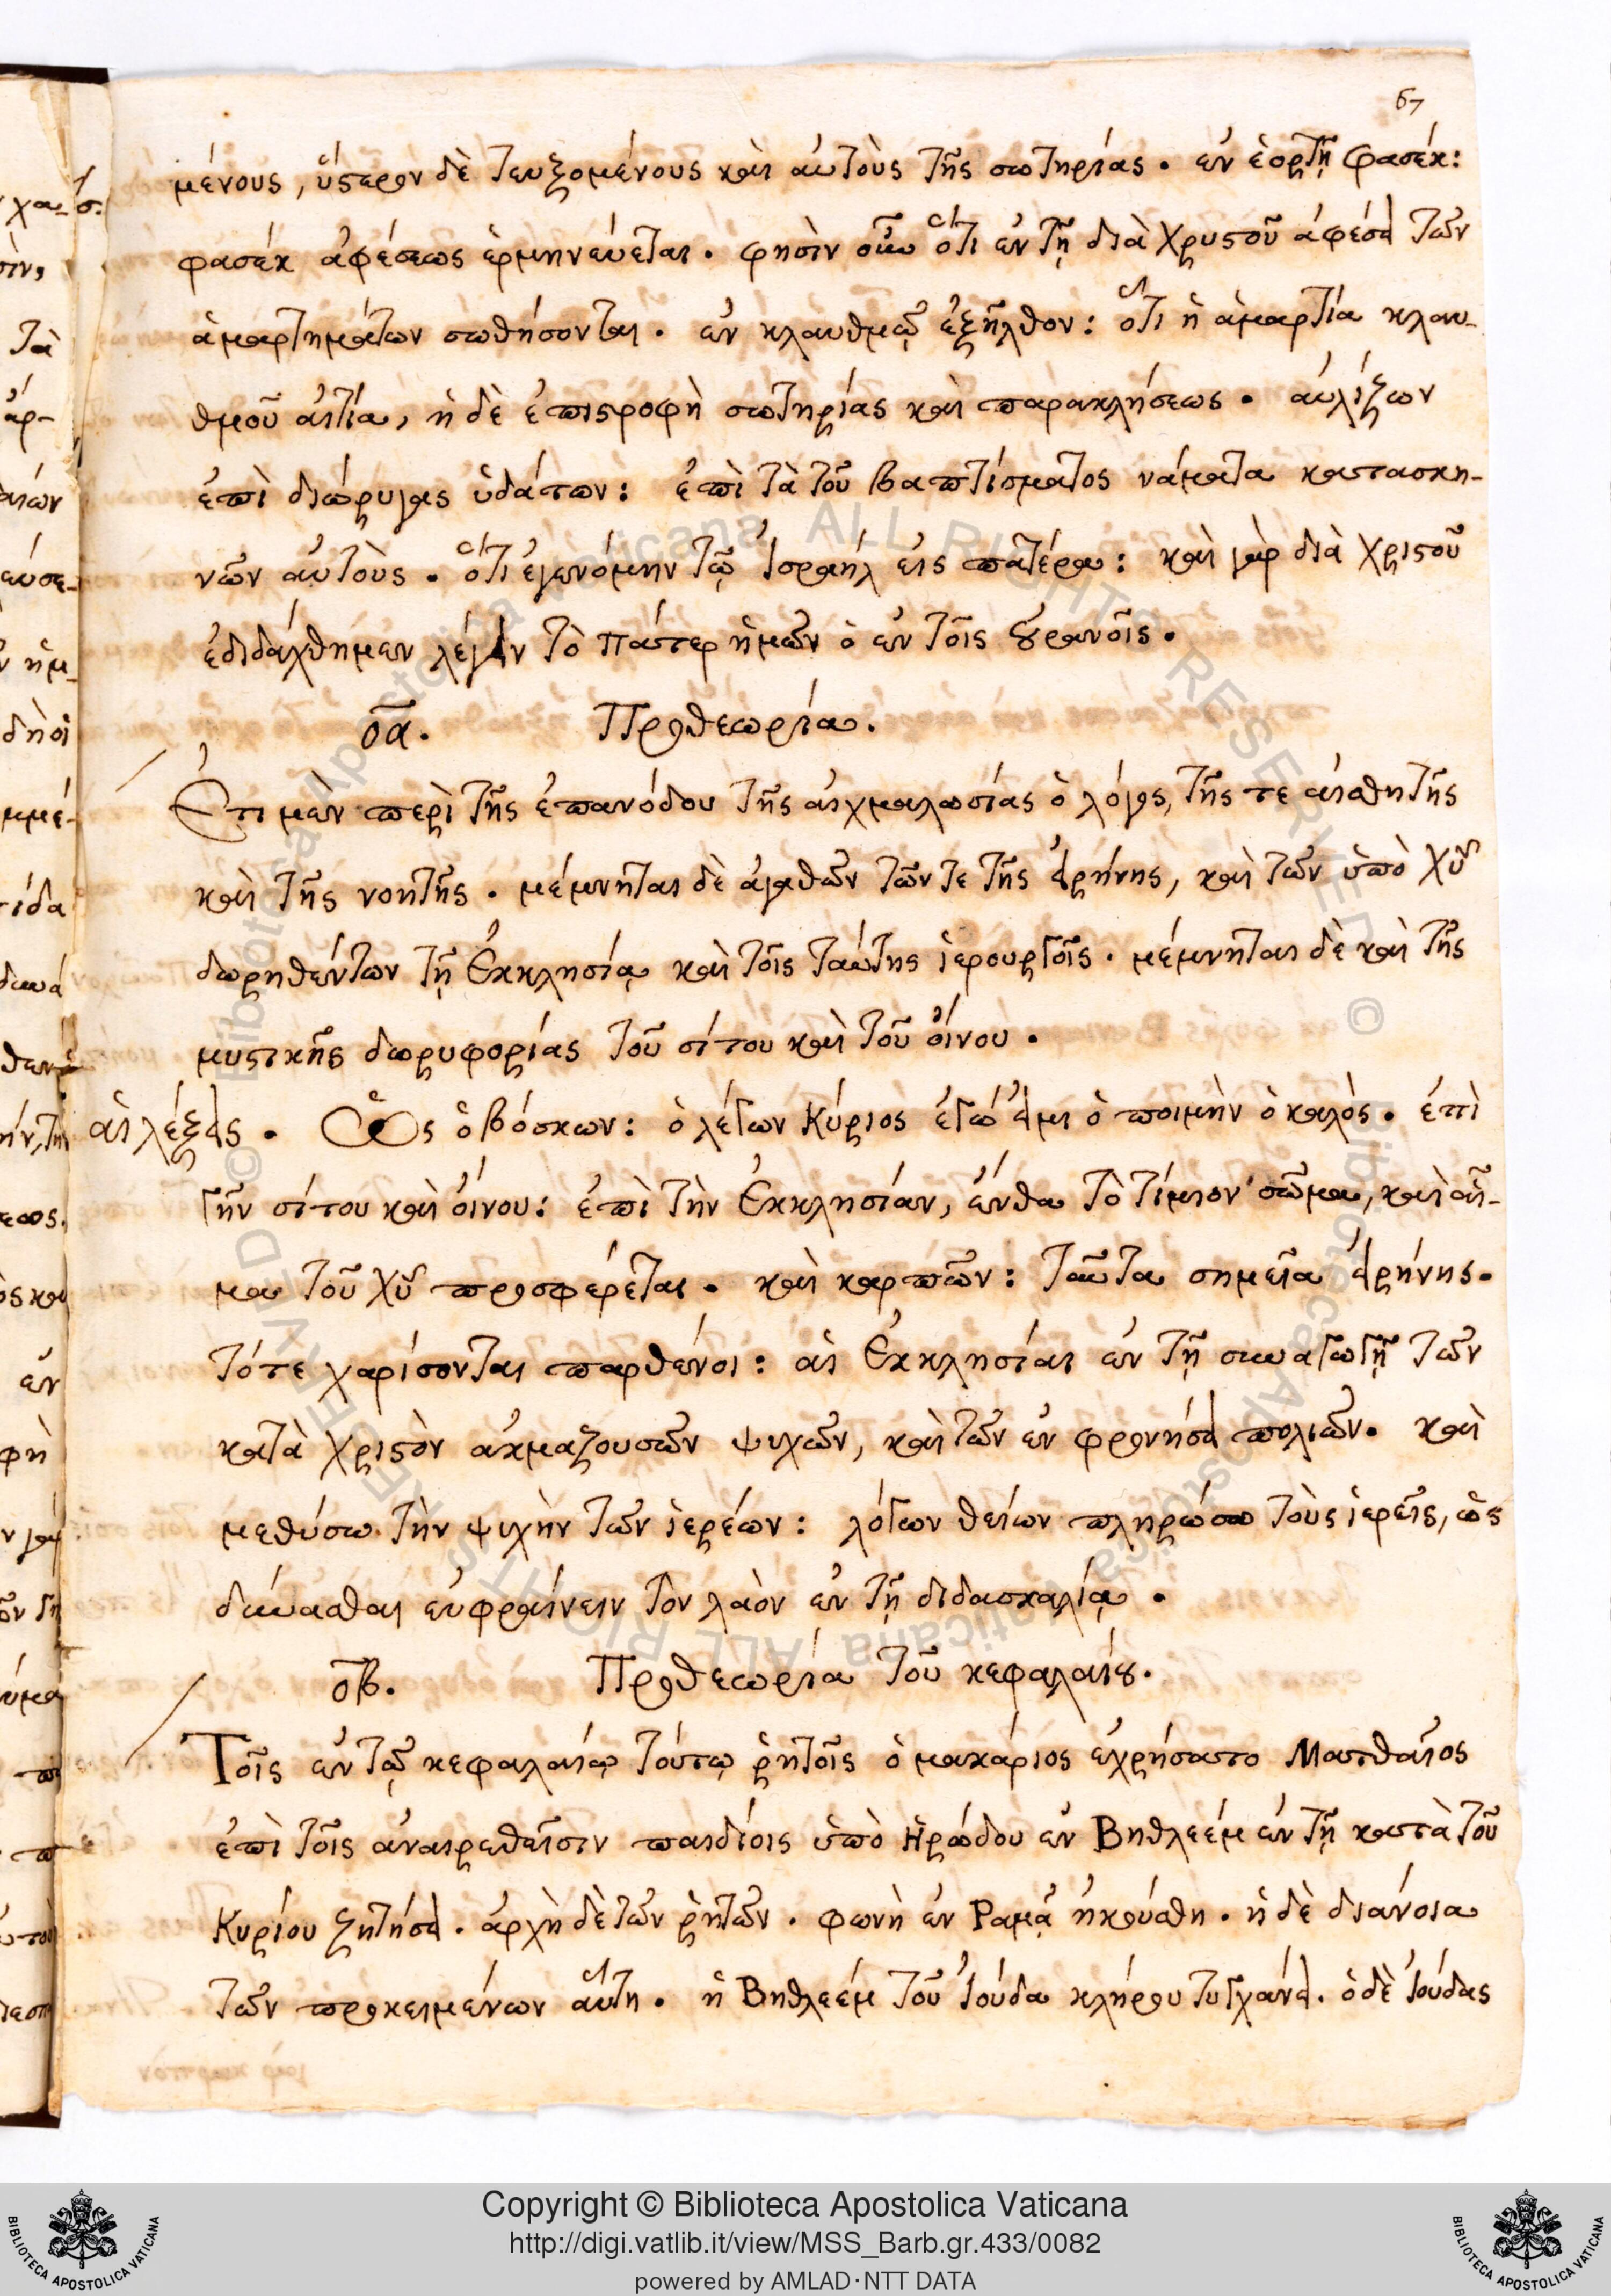 67
μένους, ὕστερον δὲ τευξομένους καὶ αὐτοὺς τῆς σωτηρίας. ἐν ἑορτῇ φασέκ:
φασέκ ἀφέσεως ἑρμηνεύεται. φησὶν οὖν ὅτι ἐν τῇ διὰ Χριστοῦ ἀφέσει τῶν
ἁμαρτημάτων σωθήσονται. ἐν κλαυθμῷ ἐξῆλθον: ὅτι ἡ ἁμαρτία κλαυ-
θμοῦ αἰτία, ἡ δὲ ἐπιστροφὴ σωτηρίας καὶ παρακλήσεως. αὐλίζων
ἐπὶ διώρυγας ὑδάτων: ἐπὶ τὰ τοῦ βαπτίσματος νάματα κατασκη-
νῶν αὐτοὺς. ὅτι ἐγενόμην τῷ Ἰσραὴλ εἰς πατέρα: καὶ γὰρ διὰ Χριστοῦ
ἐδιδάχθημεν λέγειν τὸ Πάτερ ἡμῶν ὁ ἐν τοῖς οὐρανοῖς.
οα. Προθεωρία.
Ἔτι μὲν περὶ τῆς ἐπανόδου τῆς αἰχμαλωσίας ὁ λόγος, τῆς τε αἰσθητῆς
καὶ τῆς νοητῆς. μέμνηται δὲ ἀγαθῶν τῶν τε τῆς εἰρήνης, καὶ τῶν ὑπὸ Χῦ
δωρηθέντων τῇ Ἐκκλησίᾳ καὶ τοῖς ταύτης ἱερουργοῖς. μέμνηται δὲ καὶ τῆς
μυστικῆς δωρυφορίας τοῦ σίτου καὶ τοῦ οἴνου.
αἱ λέξεις. Ὡς ὁ βόσκων: ὁ λέγων Κύριος ἐγώ εἰμι ὁ ποιμὴν ὁ καλός. ἐπὶ
γῆν σίτου καὶ οἴνου: ἐπὶ τὴν Ἐκκλησίαν, ἔνθα τὸ τίμιον σῶμα, καὶ αἷ-
μα τοῦ Χῦ προσφέρεται. καὶ καρπῶν: ταῦτα σημεῖα εἰρήνης.
τότε χαρίσονται παρθένοι: αἱ Ἐκκλησίαι ἐν τῇ συναγωγῇ τῶν
κατὰ Χριστὸν ἀκμαζουσῶν ψυχῶν, καὶ τῶν ἐν φρονήσει πολιῶν. καὶ
μεθύσω τὴν ψυχὴν τῶν ἱερέων: λόγων θείων πληρώσω τοὺς ἱερεῖς, ὡς
δύνασθαι εὐφραίνειν τὸν λαὸν ἐν τῇ διδασκαλίᾳ.
οβ. Προθεωρία τοῦ κεφαλαίου.
Τοῖς ἐν τῷ κεφαλαίῳ τούτῳ ῥητοῖς ὁ μακάριος ἐχρήσατο Ματθαῖος
ἐπὶ τοῖς ἀναιρεθεῖσιν παιδίοις ὑπὸ Ἡρώδου ἐν Βηθλεέμ ἐν τῇ κατὰ τοῦ
Κυρίου ζητήσει. ἀρχὴ δὲ τῶν ῥητῶν. φωνὴ ἐν Ραμᾷ ἠκούσθη. ἡ δὲ διάνοια
τῶν προκειμένων αὕτη. ἡ Βηθλεέμ τοῦ Ἰούδα κλήρου τυγχάνει. ὁ δὲ Ἰούδας
Copyright © Biblioteca Apostolica Vaticana
http://digi.vatlib.it/view/MSS_Barb.gr.433/0082
powered by AMLAD·NTT DATA